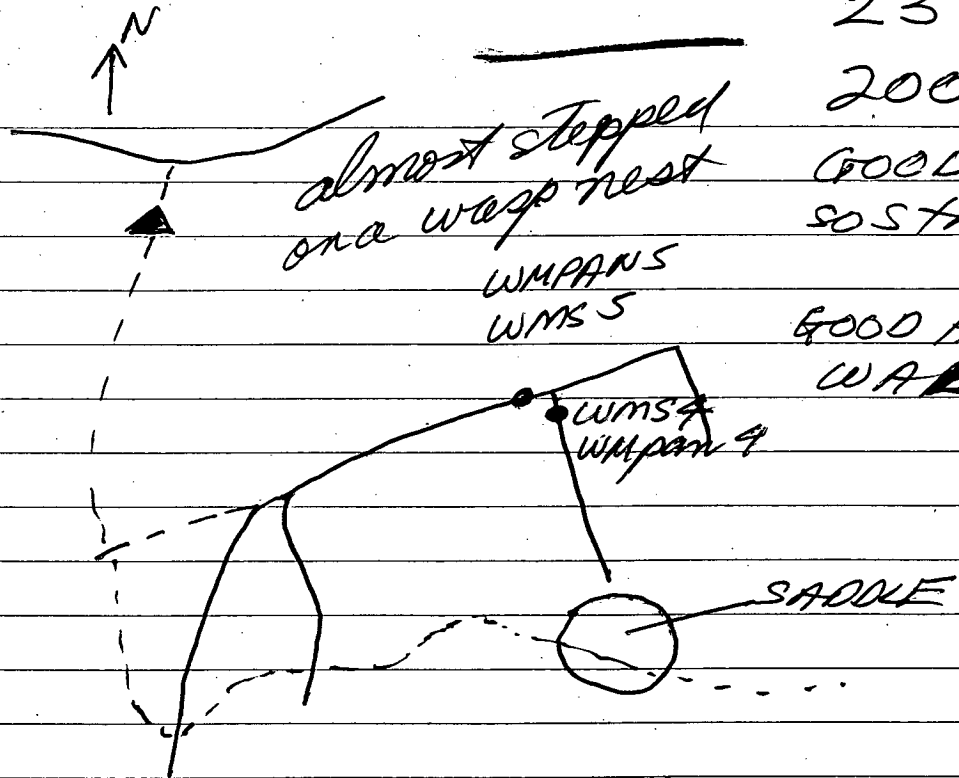 N
23
200
almost stepped
on a wasp nest
GOOD
SO STA
WMPAN5
WMS 5
GOOD
WA
WMS4
WMpan 4
SADDLE